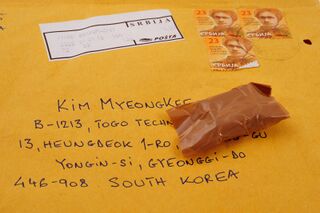 SRBIJA
POSTA
23
23
СРБИЈА
СРБИЈА
23
СРБИЈА
KIM MYEONGKEE
B-1213, TOGO TECH
13, HEUNGDEOK 1-RO, GU
YONGIN-SI, GYEONGGI-DO
446-908 SOUTH KOREA